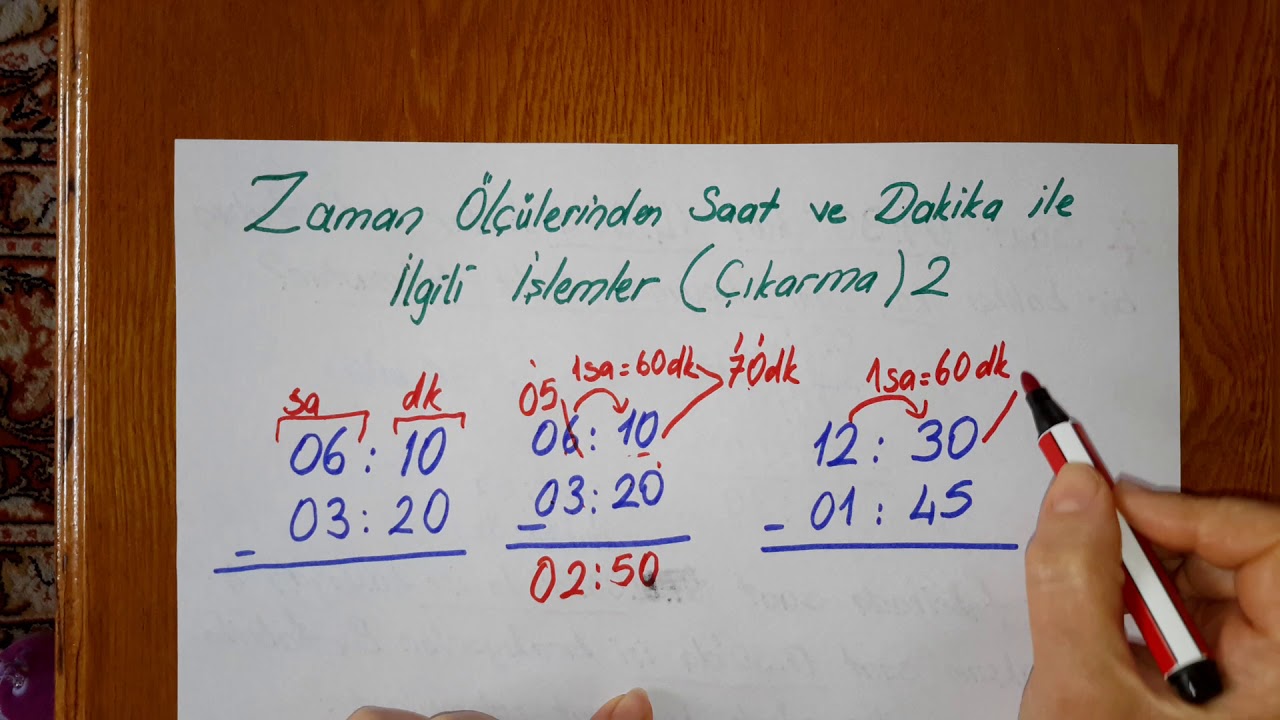 Zaman Ölçülerinden Saat ve Dakika ile
İlgili İşlemler (Çıkarma) 2
sa dk
06 : 10
03 : 20
-
05 1sa = 60dk 70dk
06 : 10
- 03 : 20
02 : 50
1sa = 60dk
12 : 30
- 01 : 45